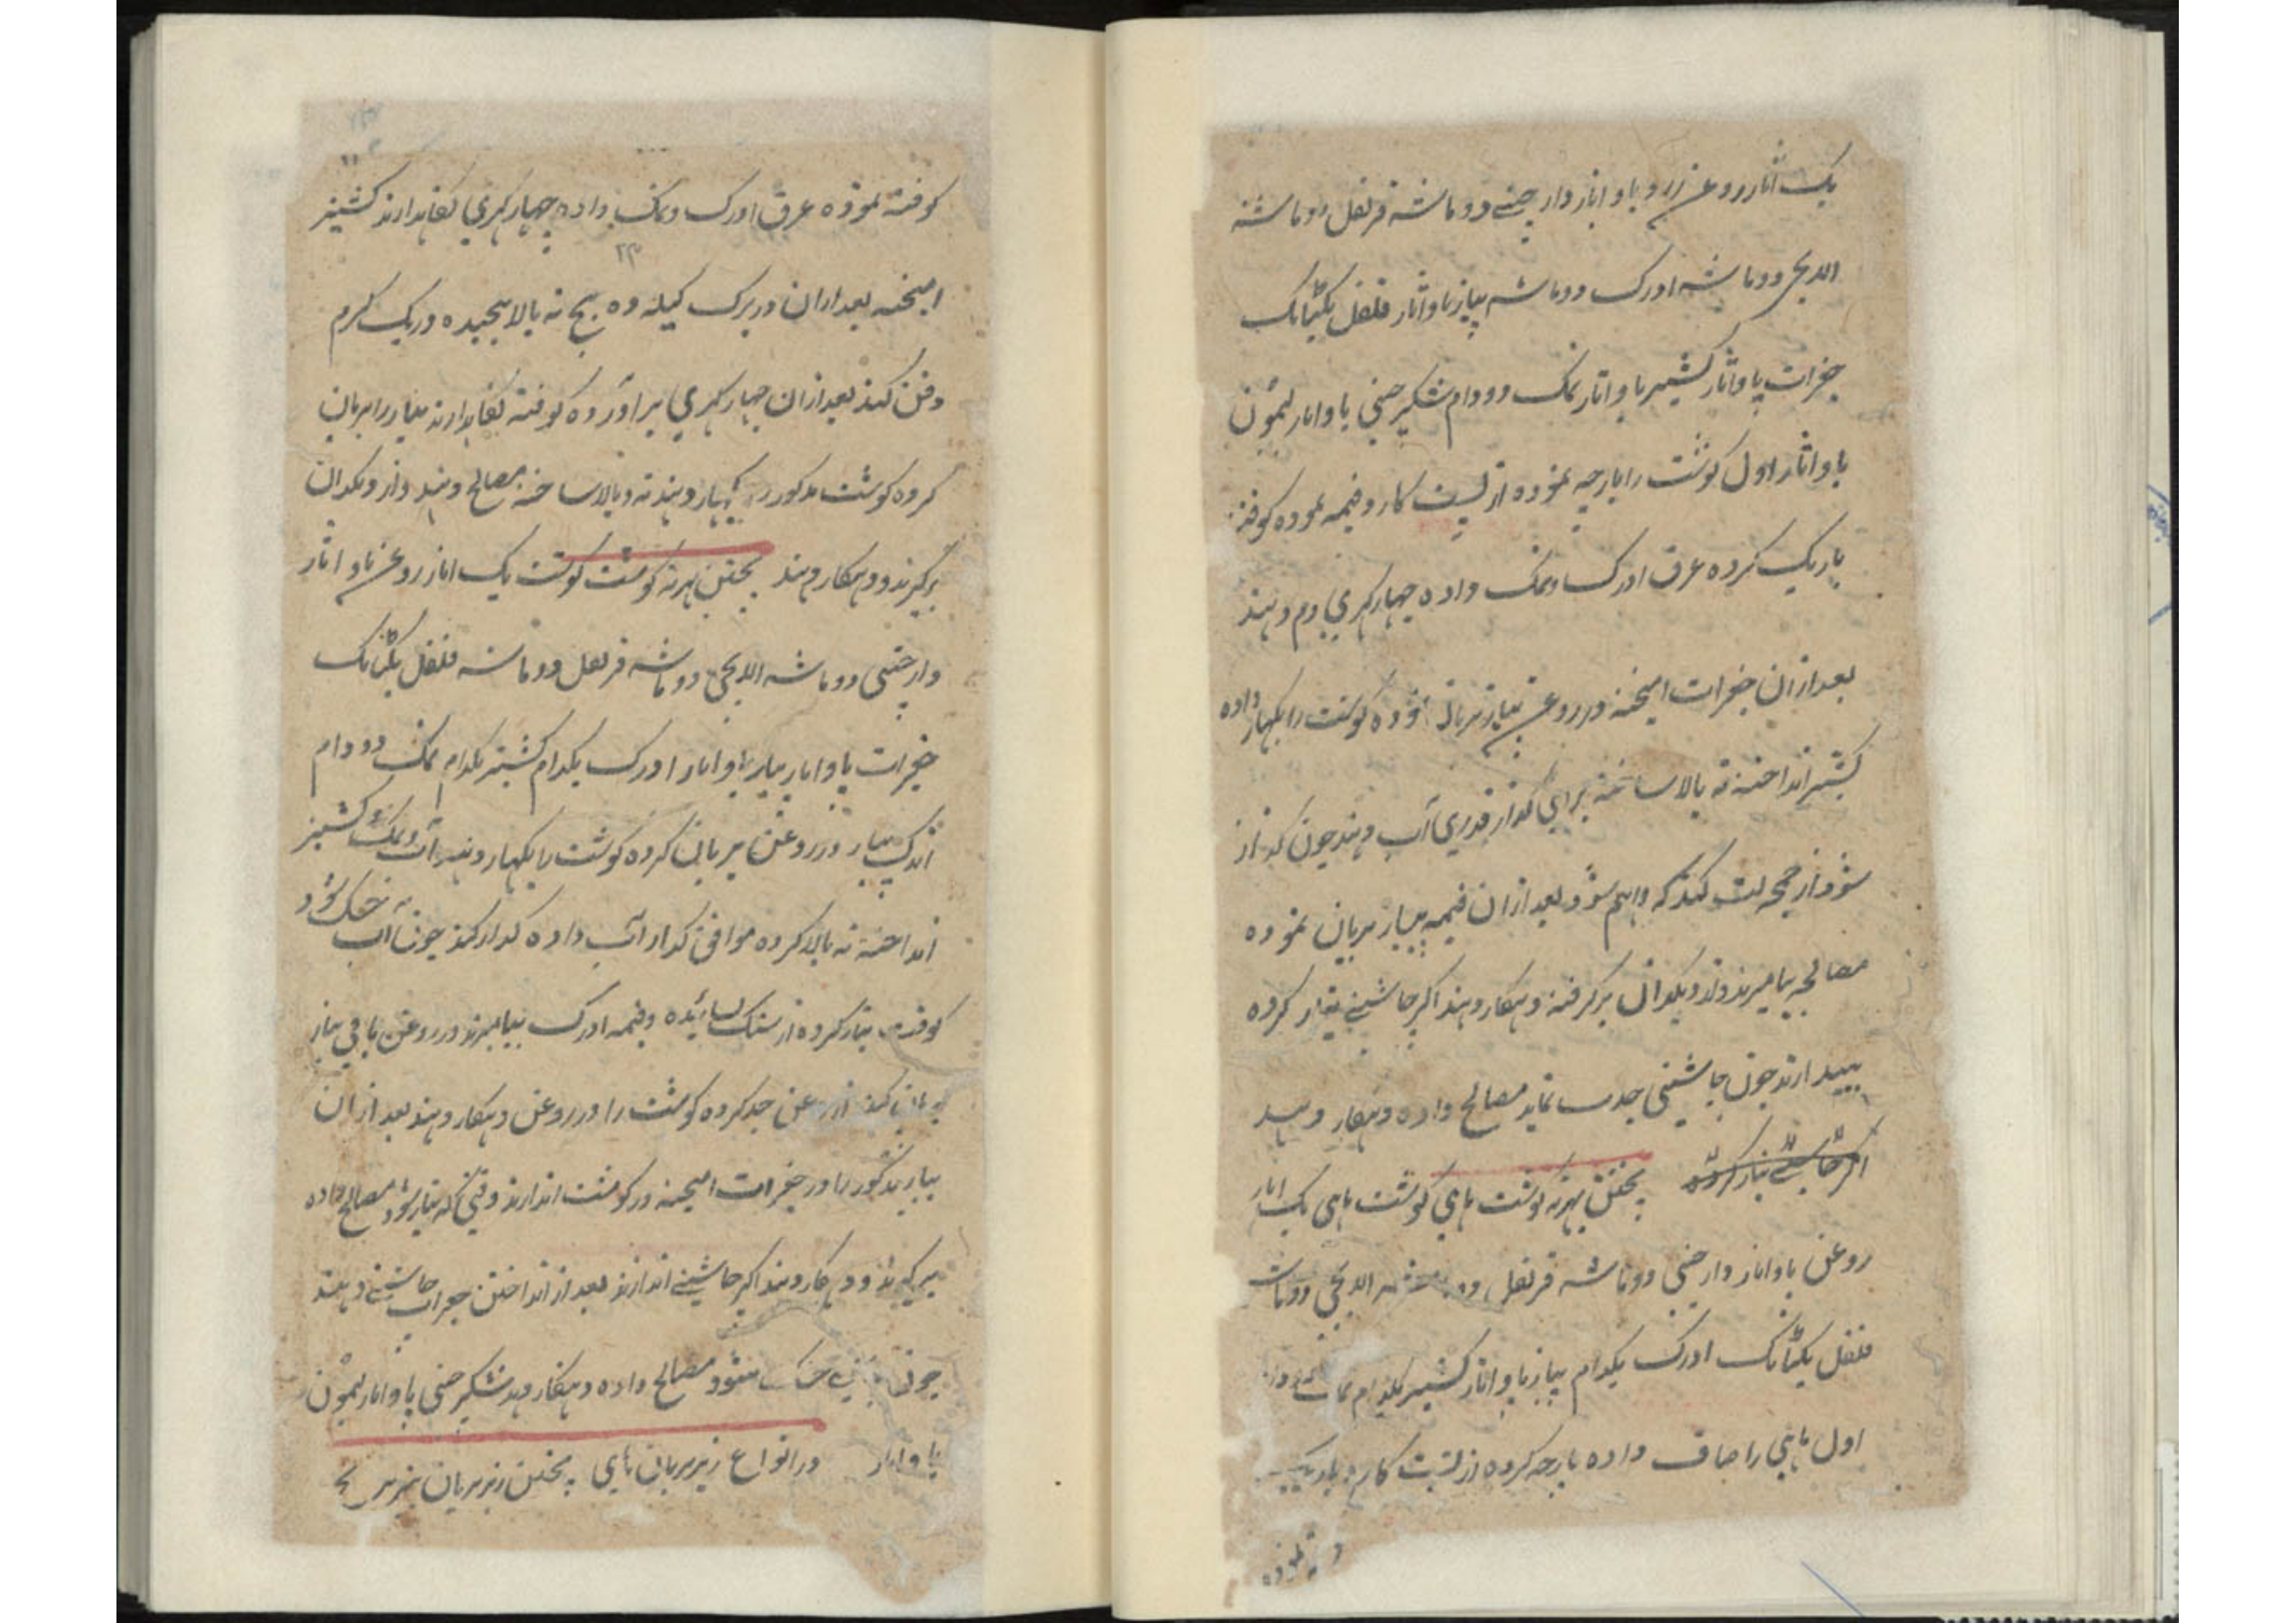 یک اثار روغن زرد باو اثار دارچینے دو ماشه قرنفل دو ماشه
الایچی دو ماشه ادرک دو ماشه پیاز باو اثار فلفل یکتانک
جغرات پاو اثار کشنیز باو اثار نمک دو دام شکر چینی پاو اثار لیمون
پاو اثار اول گوشت را پارچه نموده از پشت کارد قیمه نموده کوفته
باریک کرده عرق ادرک و نمک داده چهار کهری دم دهند
بعد ازان جغرات امیخته در روغن پیاز بریان نموده گوشت را بکهار داده
کشنیز انداخته ته بالا ساخته برای گداز قدری آب دهند چون گداز
شود از چمچه لت کنند که واهم شود بعد ازان قیمه پیاز بریان نموده
مصالحه بیامیزند و از دیکدان بر گرفته دمکار دهند اگر چاشنی تیار کرده
بیندازند چون چاشنی جذب نماید مصالح داده دمکار دهند
اگر چاشنے تیار کرده پختن بهرته گوشت ماهی گوشت ماهی یک اثار
روغن باو اثار دارچینی دو ماشه قرنفل دو ماشه الایچی دو ماشه
فلفل یکتانک ادرک یکدام پیاز پاو اثار کشنیز یکدام نمک دو دام
اول ماهی را صاف داده پارچه کرده از پشت کارد باریک
کوفته نموده عرق ادرک و نمک داده چهار کهری نگاهدارند کشنیز
۲۴
امیخته بعد ازان در برک کیله ده پنج ته بالا پیچیده در ریک گرم
دفن کنند بعد ازان چهار کهری برآورده کوفته نگاهدارند پیاز را بریان
کرده گوشت مذکور را بکهار دهند ته و بالا ساخته مصالح دهند و از دیکدان
برگیرند و دمکار دهند پختن بهرته گوشت گوشت یک اثار روغن پاو اثار
دارچینی دو ماشه الایچی دو ماشه قرنفل دو ماشه فلفل یکتانک
جغرات پاو اثار پیاز پاو اثار ادرک یکدام کشنیز یکدام نمک دو دام
اندک پیاز در روغن بریان کرده گوشت را بکهار دهند آب و نمک و کشنیز
انداخته ته بالا کرده موافق گداز آب داده گداز کنند چون آب خشک شود
کوفته تیار کرده از سنک سائیده و قیمه ادرک بیامیزند در روغن باقی پیاز
بریان کنند از روغن جدا کرده گوشت را در روغن دمکار دهند بعد ازان
پیاز مذکور را در جغرات امیخته در گوشت اندازند وقتی که تیار شود مصالح داده
برگیرند و دمکار دهند اگر چاشنی اندازند بعد از انداختن جغرات چاشنے دهند
چون چاشنی خشک شود مصالح داده دمکار دهند شکر چینی پاو اثار لیمون
پاو اثار در انواع زیربریان ماهی پختن زیربریان